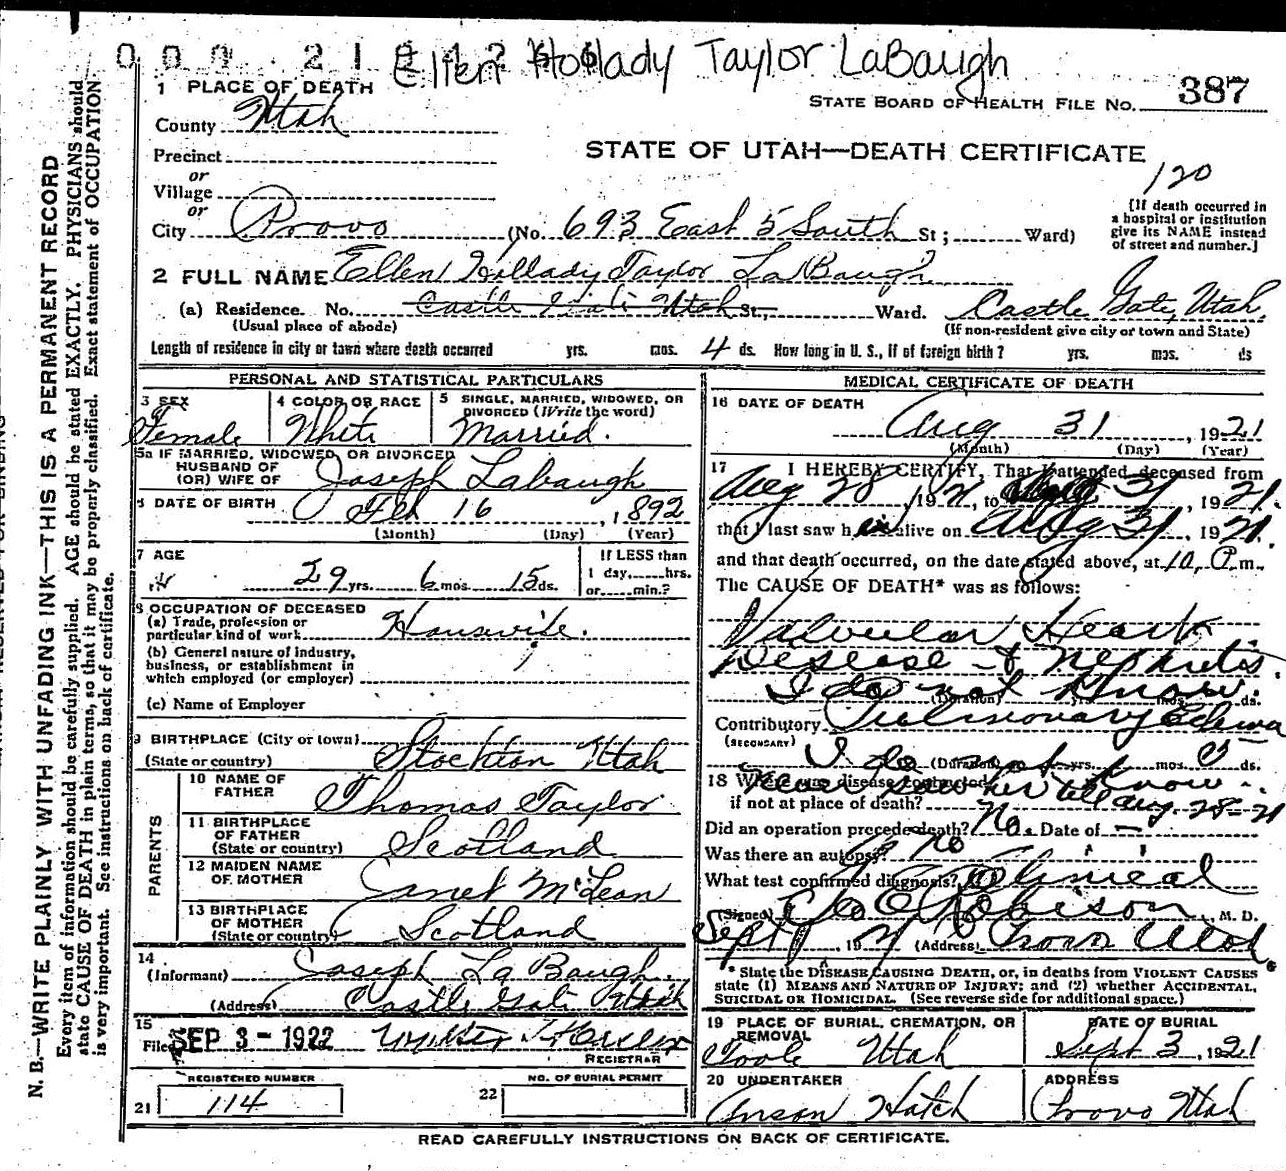 Ellen Hollady Taylor LaBaugh
1 PLACE OF DEATH
STATE BOARD OF HEALTH FILE No. 387
County Utah
STATE OF UTAH—DEATH CERTIFICATE
Precinct
or
Village
or
120
[If death occurred in a hospital or institution give its NAME instead of street and number.]
City Provo (No. 693 East 5 South St; Ward)
2 FULL NAME Ellen Hollady Taylor LaBaugh
(a) Residence. No. Castle Gate Utah St., Ward. Castle Gate, Utah.
(Usual place of abode) (If non-resident give city or town and State)
Length of residence in city or town where death occurred yrs. mos. 4 ds. How long in U. S., if of foreign birth? yrs. mos. ds
PERSONAL AND STATISTICAL PARTICULARS
3 SEX Female
4 COLOR OR RACE White
5 SINGLE, MARRIED, WIDOWED, OR DIVORCED (Write the word) Married.
5a IF MARRIED, WIDOWED, OR DIVORCED
HUSBAND OF
(OR) WIFE OF Joseph Labaugh
6 DATE OF BIRTH Feb 16, 1892
(Month) (Day) (Year)
7 AGE 29 yrs. 6 mos. 15 ds.
If LESS than
1 day,......hrs.
or......min.?
8 OCCUPATION OF DECEASED
(a) Trade, profession or
particular kind of work Housewife.
(b) General nature of industry,
business, or establishment in
which employed (or employer)
(c) Name of Employer
9 BIRTHPLACE (City or town)
(State or country) Stockton Utah
PARENTS
10 NAME OF
FATHER Thomas Taylor
11 BIRTHPLACE
OF FATHER
(State or country) Scotland
12 MAIDEN NAME
OF MOTHER Janet McLean
13 BIRTHPLACE
OF MOTHER
(State or country) Scotland
14
(Informant) Joseph LaBaugh.
(Address) Castle Gate Utah
15
Filed SEP 3 - 1922
REGISTRAR
REGISTERED NUMBER
21 114
NO. OF BURIAL PERMIT
22
MEDICAL CERTIFICATE OF DEATH
16 DATE OF DEATH
Aug 31, 1921
(Month) (Day) (Year)
17 I HEREBY CERTIFY, That I attended deceased from
Aug 28, 1921, to Aug 31, 1921.
that I last saw her alive on Aug 31, 1921.
and that death occurred, on the date stated above, at 10 P m.
The CAUSE OF DEATH* was as follows:
Valvular Heart
Desease & Nephritis.
I do not Know.
(Duration) yrs. mos. ds.
Contributory Pulmonary Edema
(SECONDARY)
I do not know
(Duration) yrs. mos. 5 ds.
18 Where was disease contracted
if not at place of death?
Never saw her till Aug. 28-21
Did an operation precede death? No. Date of —
Was there an autopsy? No
What test confirmed diagnosis? Clinical
(Signed) Robison, M. D.
Sept 1, 1921 (Address) Provo Utah
* State the DISEASE CAUSING DEATH, or, in deaths from VIOLENT CAUSES
state (1) MEANS AND NATURE OF INJURY; and (2) whether ACCIDENTAL,
SUICIDAL OR HOMICIDAL. (See reverse side for additional space.)
19 PLACE OF BURIAL, CREMATION, OR
REMOVAL Tooele Utah
DATE OF BURIAL
Sept 3, 1921
20 UNDERTAKER
Anson Hatch
ADDRESS
Provo Utah
READ CAREFULLY INSTRUCTIONS ON BACK OF CERTIFICATE.
N. B.—WRITE PLAINLY WITH UNFADING INK—THIS IS A PERMANENT RECORD
Every item of information should be carefully supplied. AGE should be stated EXACTLY. PHYSICIANS should
state CAUSE OF DEATH in plain terms, so that it may be properly classified. Exact statement of OCCUPATION
is very important. See instructions on back of certificate.